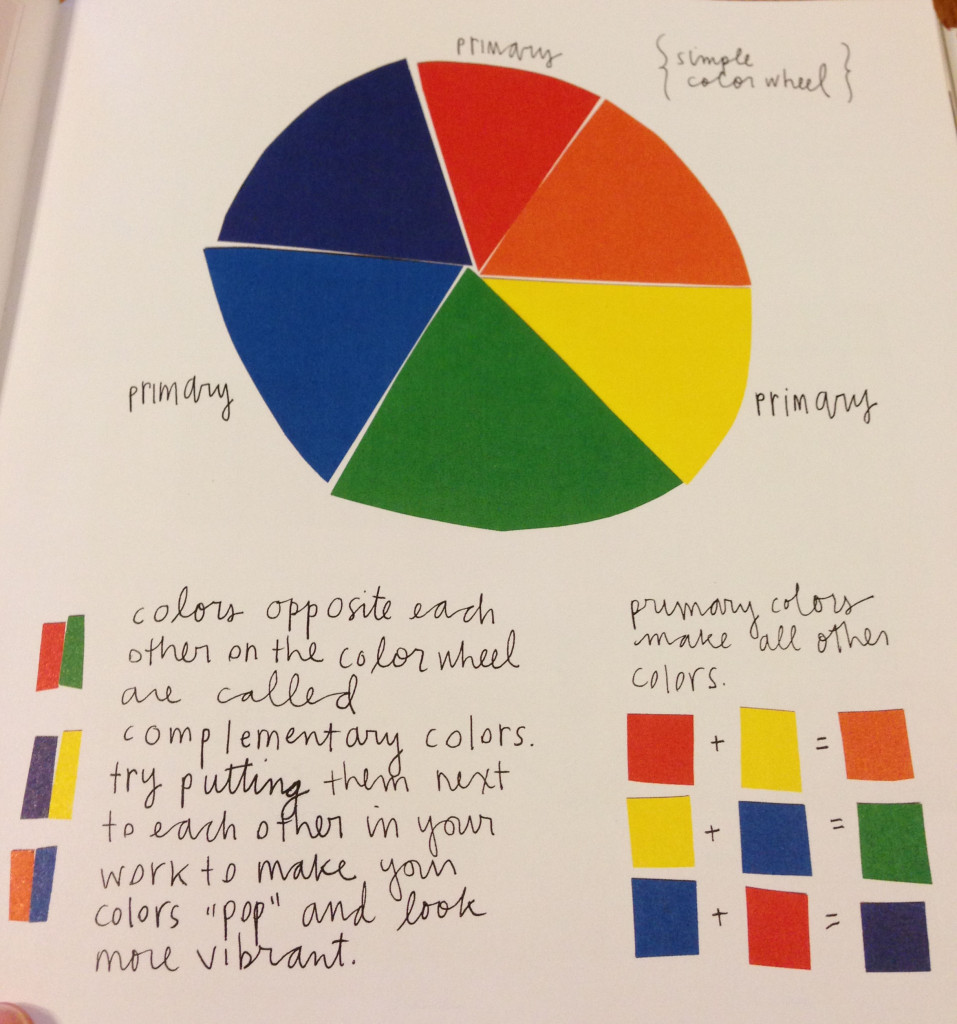 primary
{simple
color wheel}
primary
primary
colors opposite each
other on the color wheel
are called
complementary colors.
try putting them next
to each other in your
work to make your
colors "pop" and look
more vibrant.
primary colors
make all other
colors.
+ =
+ =
+ =